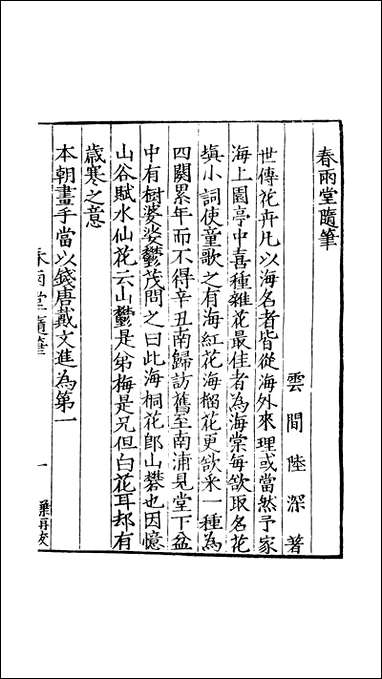 春雨堂隨筆
雲間陸深著
世傳花卉凡以海名者皆從海外來理或當然予家
海上園亭中喜種雜花最佳者為海棠每欲取名花
塡小詞使童歌之有海紅花海榴花更欲采一種為
四闋累年而不得辛丑南歸訪舊至南浦見堂下盆
中有樹婆娑鬱茂問之曰此海桐花卽山礬也因憶
山谷賦水仙花云山鬱是弟梅是兄但白花耳却有
歲寒之意
本朝畫手當以錢唐戴文進為第一
春雨堂隨筆
一